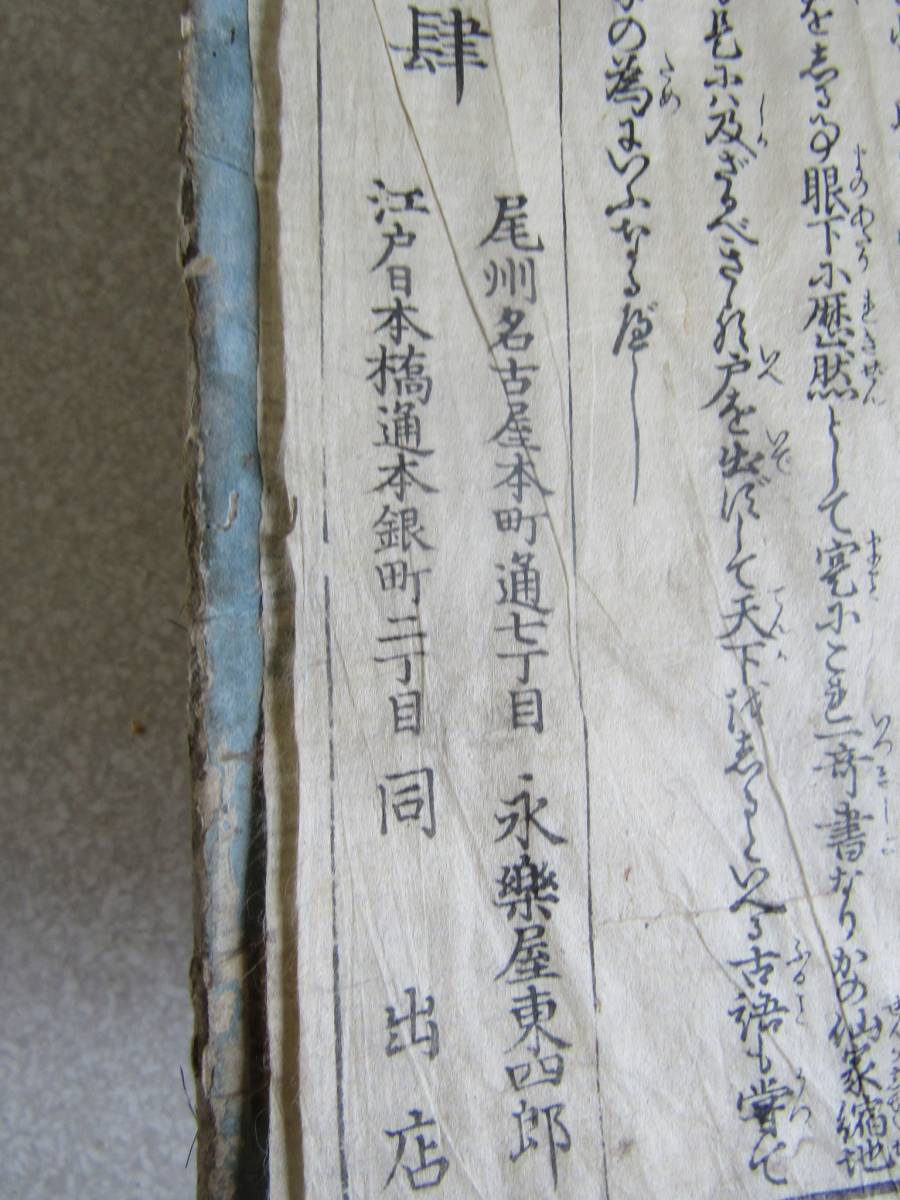 を志る事眼下に歴然として寔にこれ一奇書なりかの仙家縮地
及ざるべき歟戸を出ずして天下を志るといへる古語も嘗て
の為にいふなるべし
肆
尾州名古屋本町通七丁目 永樂屋東四郎
江戸日本橋通本銀町二丁目 同 出店